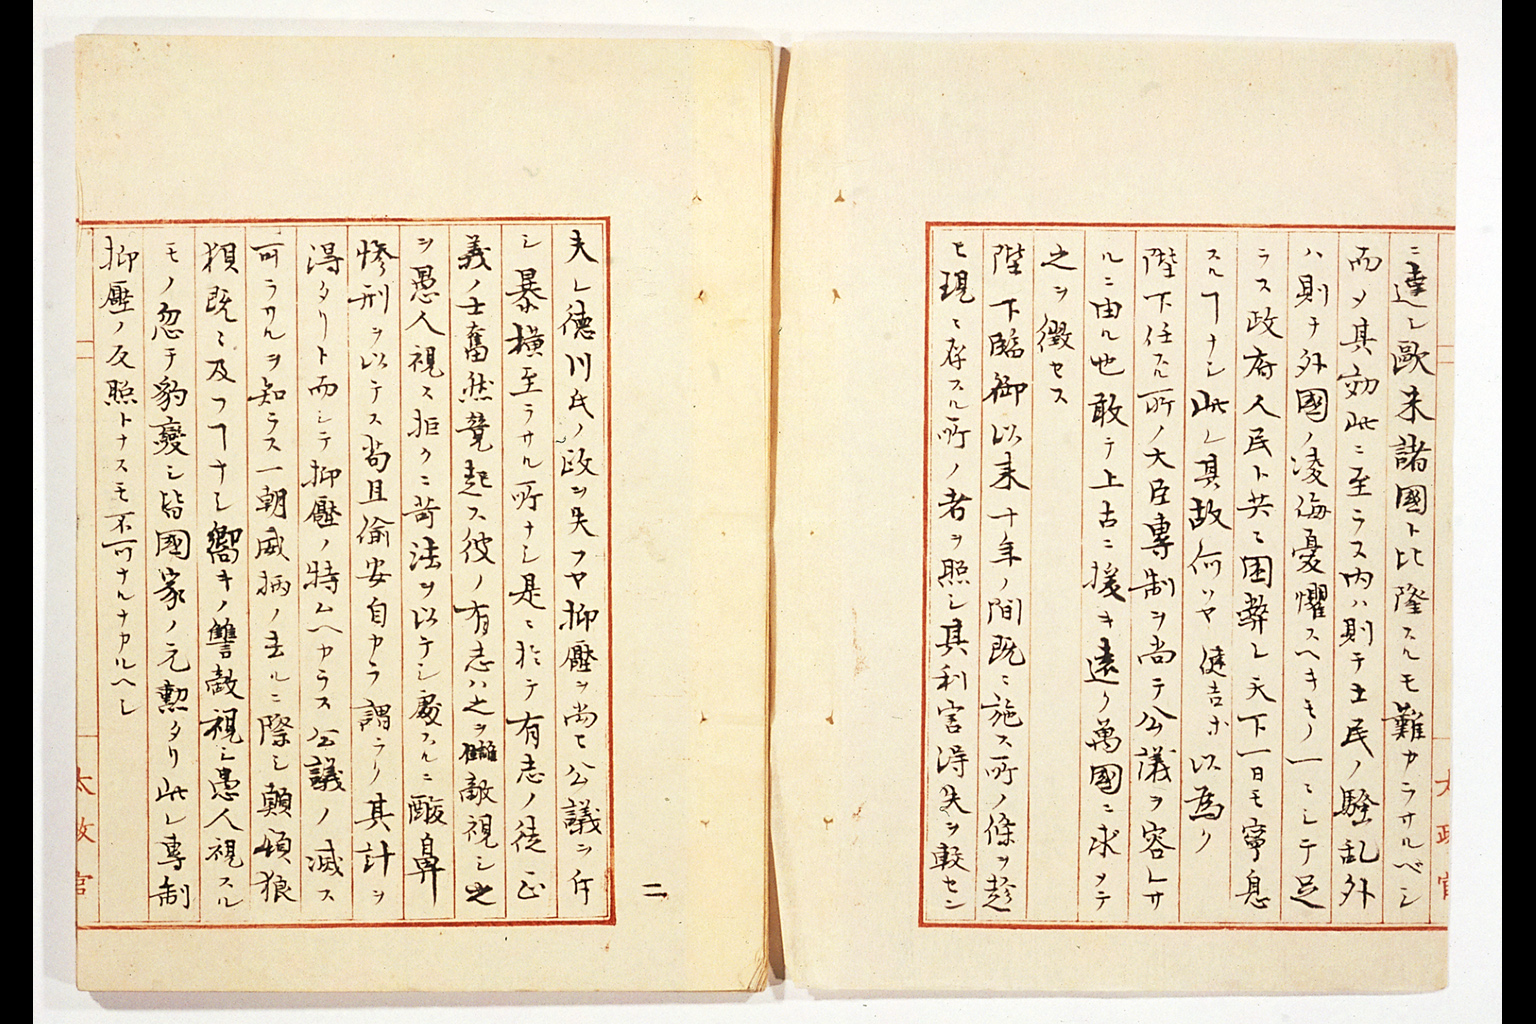 ニ達シ歐米諸國ト比隆スルモ難カラサルベシ
而メ其効此ニ至ラス内ハ則チ士民ノ騒乱外
ハ則チ外國ノ凌侮憂懼スヘキモノ一ニシテ足
ラス政府人民ト共ニ困弊シ天下一日モ寧息
スルヿナシ此レ其故何ソヤ健吉等以為ク
陛下任スル所ノ大臣專制ヲ尚テ公議ヲ容レサ
ルニ由ル也敢テ上古ニ援キ遠ク萬國ニ求メテ
之ヲ徴セス
陛下臨御以来十年ノ間既ニ施ス所ノ條ヲ趁
ヒ現ニ存スル所ノ者ヲ照シ其利害得失ヲ較セン
太政官
二
夫レ徳川氏ノ政ヲ失フヤ抑壓ヲ尚ヒ公議ヲ斥
シ暴横至ラサル所ナシ是ニ於テ有志ノ徒正
義ノ士奮然競起ス彼ノ有志ハ之ヲ讎敵視シ之
ヲ愚人視ス拒クニ苛法ヲ以テシ處スルニ酸鼻
惨刑ヲ以テス苟且偸安自カラ謂ラク其計ヲ
得タリト而シテ抑壓ノ特ムヘカラス公議ノ滅ス
可ラサルヲ知ラス一朝威柄ノ去ルニ際シ顛頓狼
狽既ニ及フヿナシ嚮キノ讐敵視シ愚人視スル
モノ忽チ豹變シ皆國家ノ元勲タリ此レ專制
抑壓ノ反照トナスモ不可ナルナカルヘシ
太政官